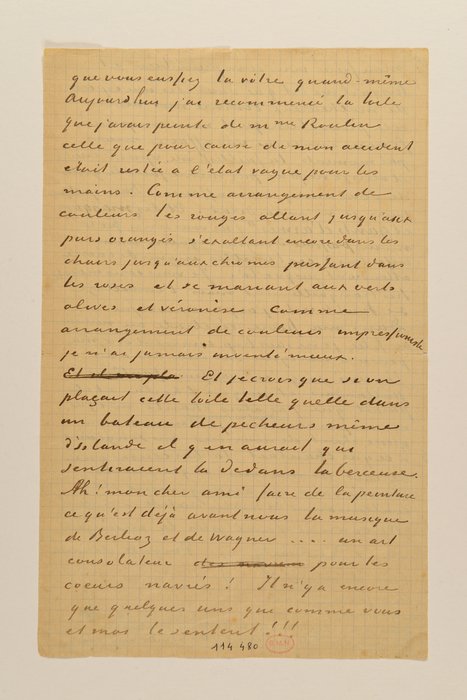 que vous eussiez la vôtre quand-même
Aujourd'hui j'ai recommencé la toile
que j'avais peinte de mme Roulin
celle que pour cause de mon accident
était restée a l'état vague pour les
mains. Comme arrangement de
couleurs les rouges allant jusqu'aux
purs orangés s'exaltant encore dans les
chairs jusqu'aux chromes passant dans
les roses et se mariant aux verts
olives et véronèse comme
arrangement de couleurs impressioniste
je n'ai jamais inventé mieux.
Et Et je crois que si on
plaçait cette toile telle quelle dans
un bateau de pecheurs même
d'Islande il y en aurait qui
sentiraient là dedans la berceuse.
Ah! mon cher ami faire de la peinture
ce qu'est déjà avant nous la musique
de Berlioz et de Wagner .... un art
consolateur pour les
coeurs navrés! Il n'y a encore
que quelques uns que comme vous
et moi le sentent!!!
114 480